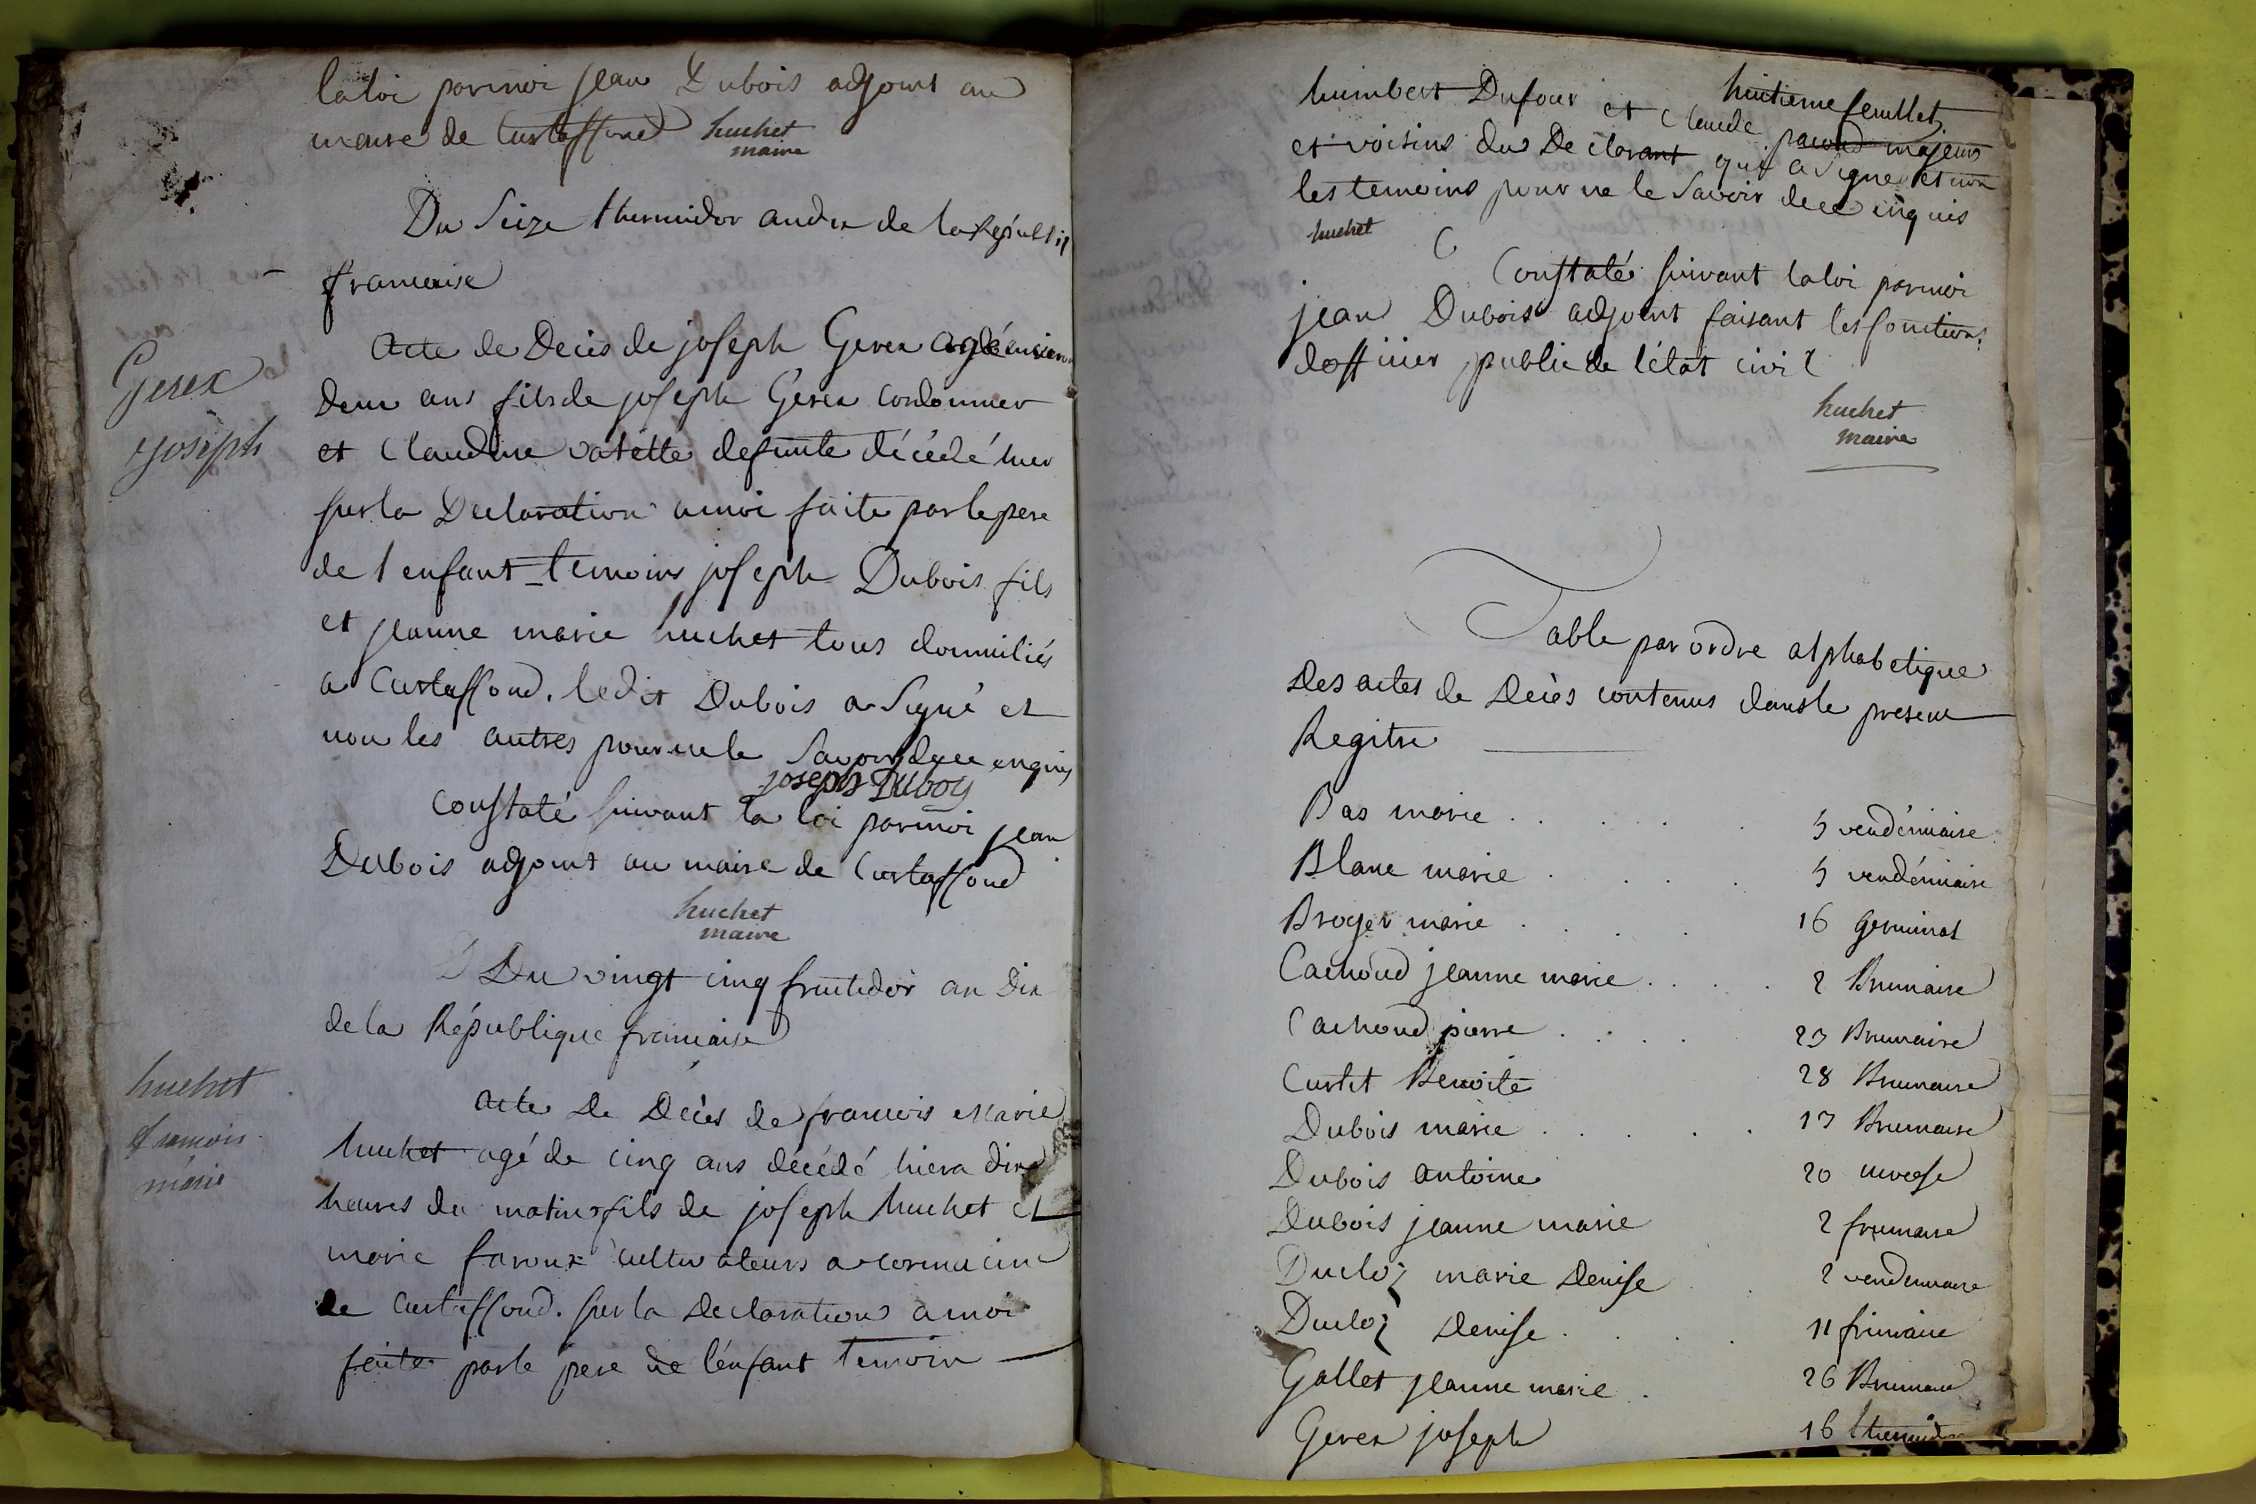 la loi par moi jean Dubois adjoint au
maire de Curtaffond huchet
maire
Du Seize thermidor an dix de la Républiq
francaise
Gerex
joseph
acte de Deces de joseph Gerex agé environ
deux ans fils de joseph Gerex cordonnier
et Claudine valette defunte décédé hier
sur la Declaration a moi faite par le pere
de l enfant temoins joseph Dubois fils
et jeanne marie huchet tous domiciliés
a Curtaffond. ledit Dubois a Signé et
non les autres pour ne le Savoir de ce enquis
joseph Duboy
Constaté suivant la loi par moi jean
Dubois adjoint au maire de Curtaffond
huchet
maire
Du vingt cinq fructidor an Dix
de la République francaise
huchet
francois
marie
acte De Décès de francois Marie
huchet agé de cinq ans décédé hier a dix
heures du matin fils de joseph huchet et
marie favoux cultivateurs a
de Curtaffond. sur la Declaration a moi
faite par le pere de l'enfant temoin
huitieme feuillet
humbert Dufour et Claude pacoud majeurs
et voisins du Declarant qui a Signé et non
les temoins pour ne le Savoir de ce enquis
huchet
Constaté suivant la loi par moi
jean Dubois adjoint faisant les fonctions
d'officier public de l'état civil
huchet
maire
Table par ordre alphabetique
Des actes de Décès contenus dans le present
Regitre
Bas marie . . . . . 5 vendémiaire
Blanc marie . . . . 5 vendémiaire
Broyer marie . . . . 16 germinal
Cachoud jeanne marie . . . . 2 Brumaire
Cachoud pierre . . . . 23 Brumaire
Curtet Benoite 28 Brumaire
Dubois marie . . . . . 17 Brumaire
Dubois antoine 20 nivose
Dubois jeanne marie 2 frimaire
Ducloz marie Denise . 2 vendemiaire
Ducloz Denise . . . . 11 frimaire
Gallet jeanne marie . 26 Brumaire
Gerex joseph 16 thermidor